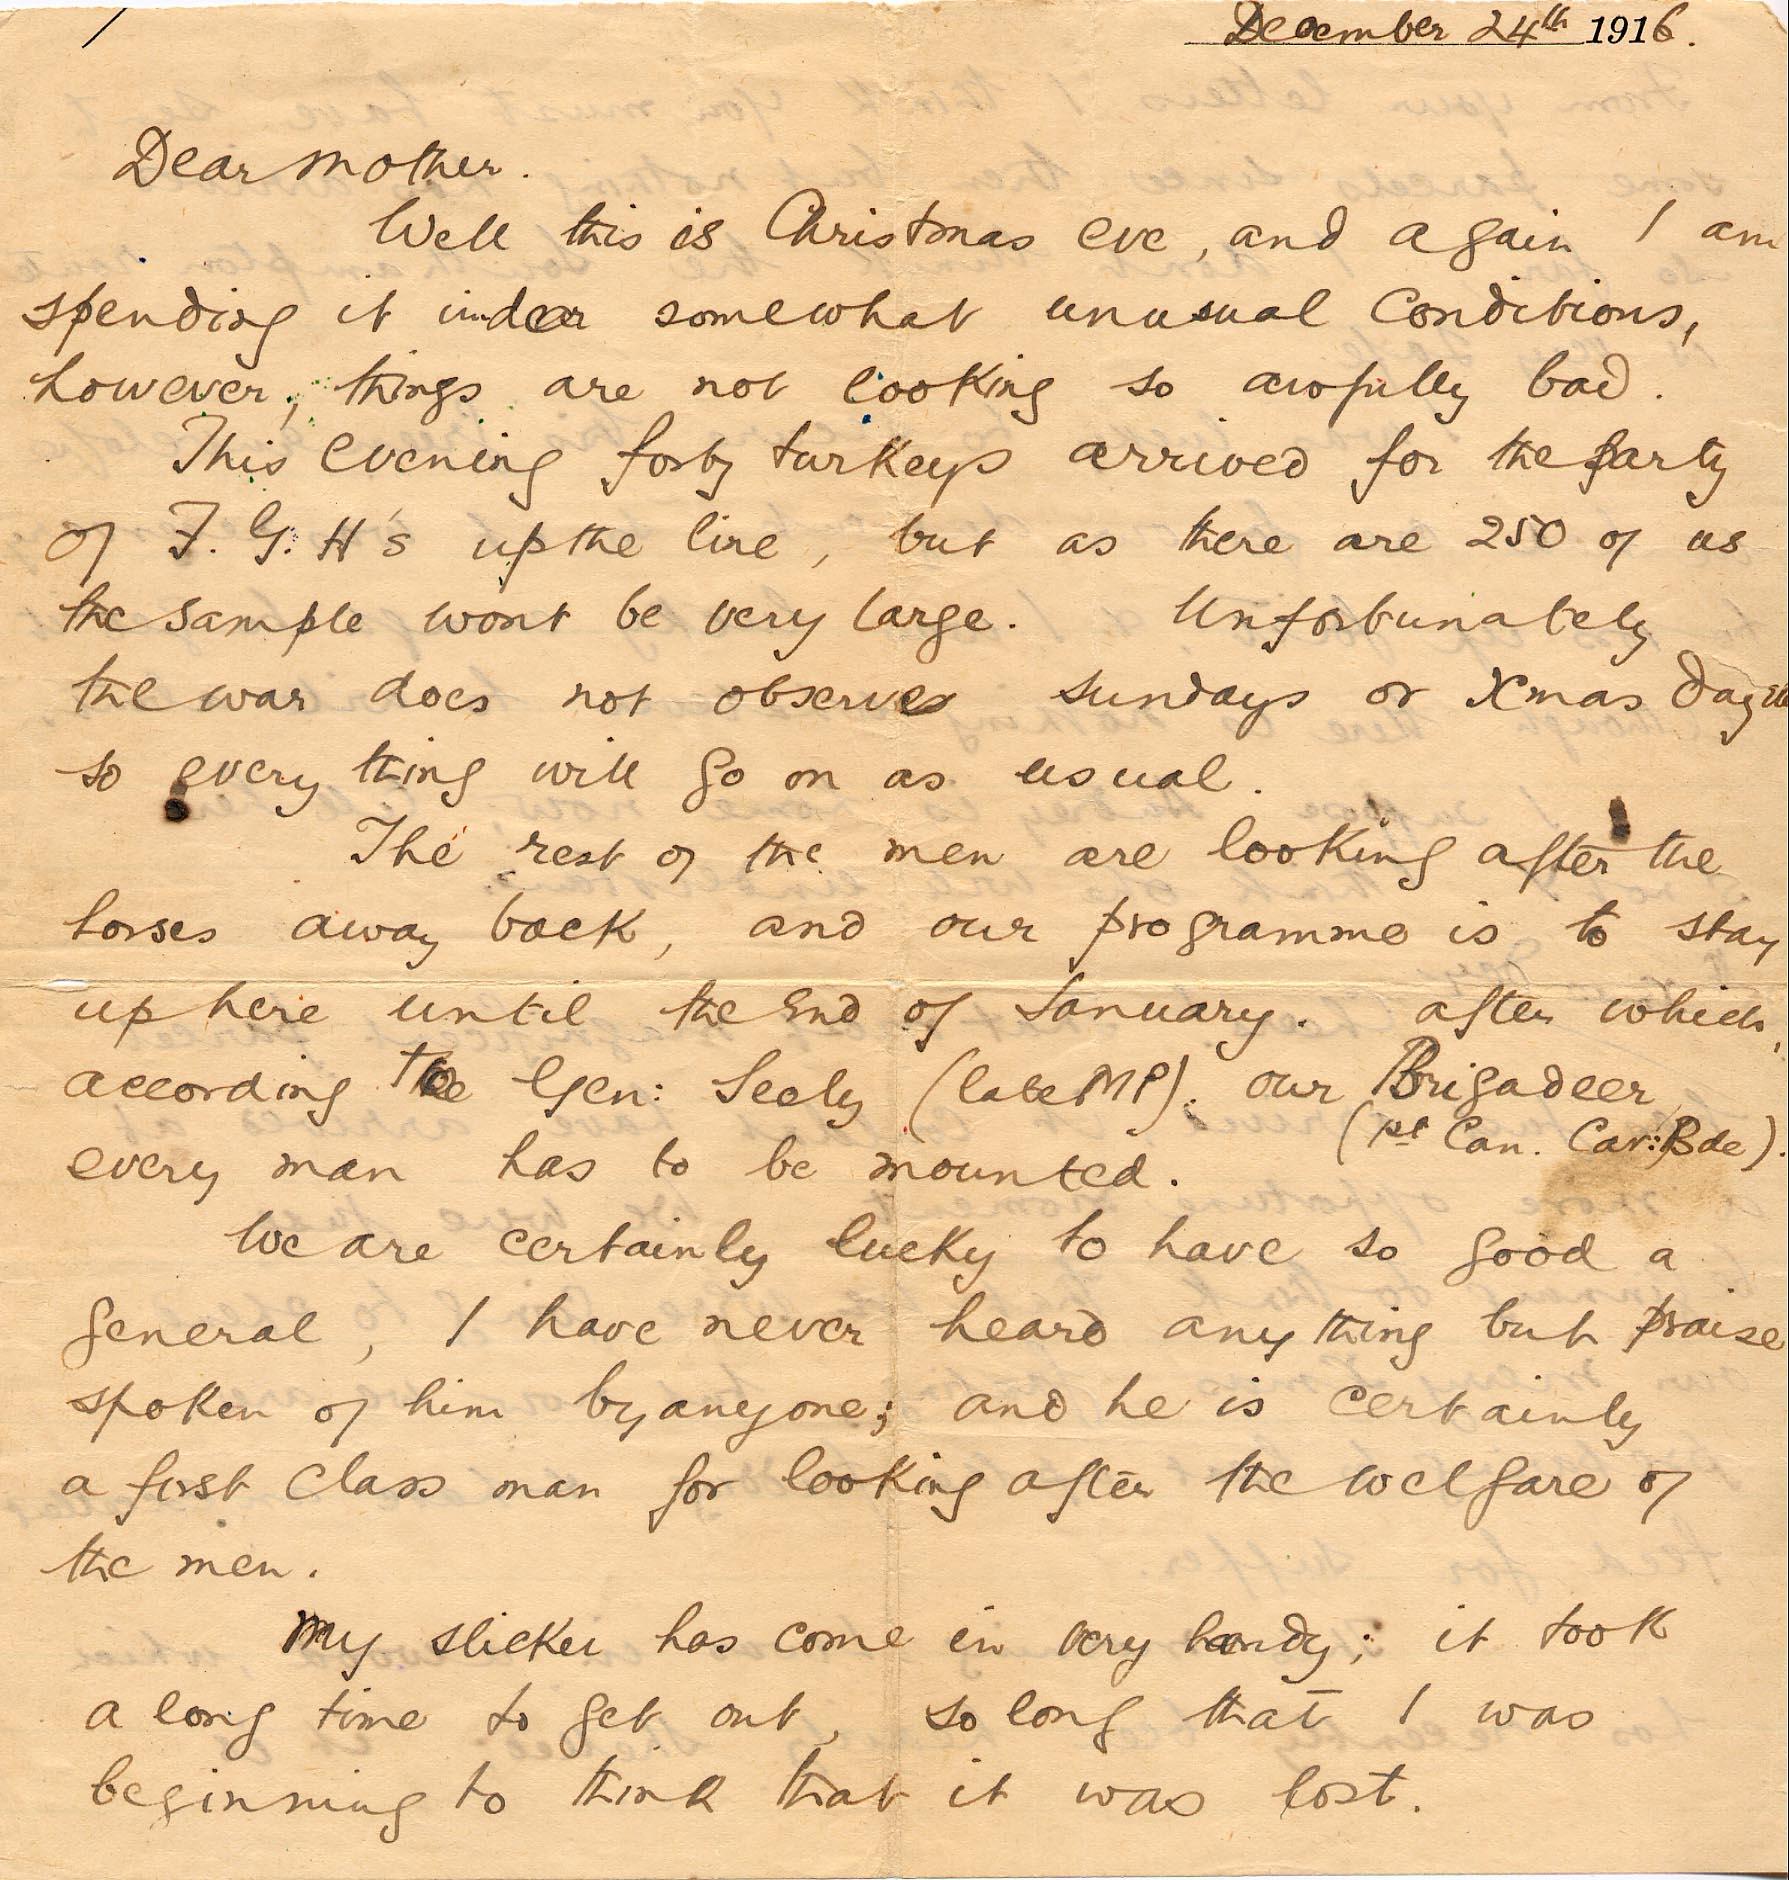 December 24th 1916.
Dear Mother.
Well this is Christmas eve, and again I am
spending it under somewhat unusual conditions,
however, things are not looking so awfully bad.
This evening forty turkeys arrived for the party
of F. G. H's up the line, but as there are 250 of us
the sample wont be very large. Unfortunately
the war does not observe sundays or Xmas Day
so every thing will go on as usual.
The rest of the men are looking after the
horses away back, and our programme is to stay
up here until the end of January. after which,
according to Gen: Seely (late MP). our Brigadeer
(1st Can. Cav: Bde).
every man has to be mounted.
We are certainly lucky to have so good a
general, I have never heard any thing but praise
spoken of him by anyone; and he is certainly
a first class man for looking after the welfare of
the men.
My slicker has come in very handy; it took
a long time to get out, so long that I was
beginning to think that it was lost.